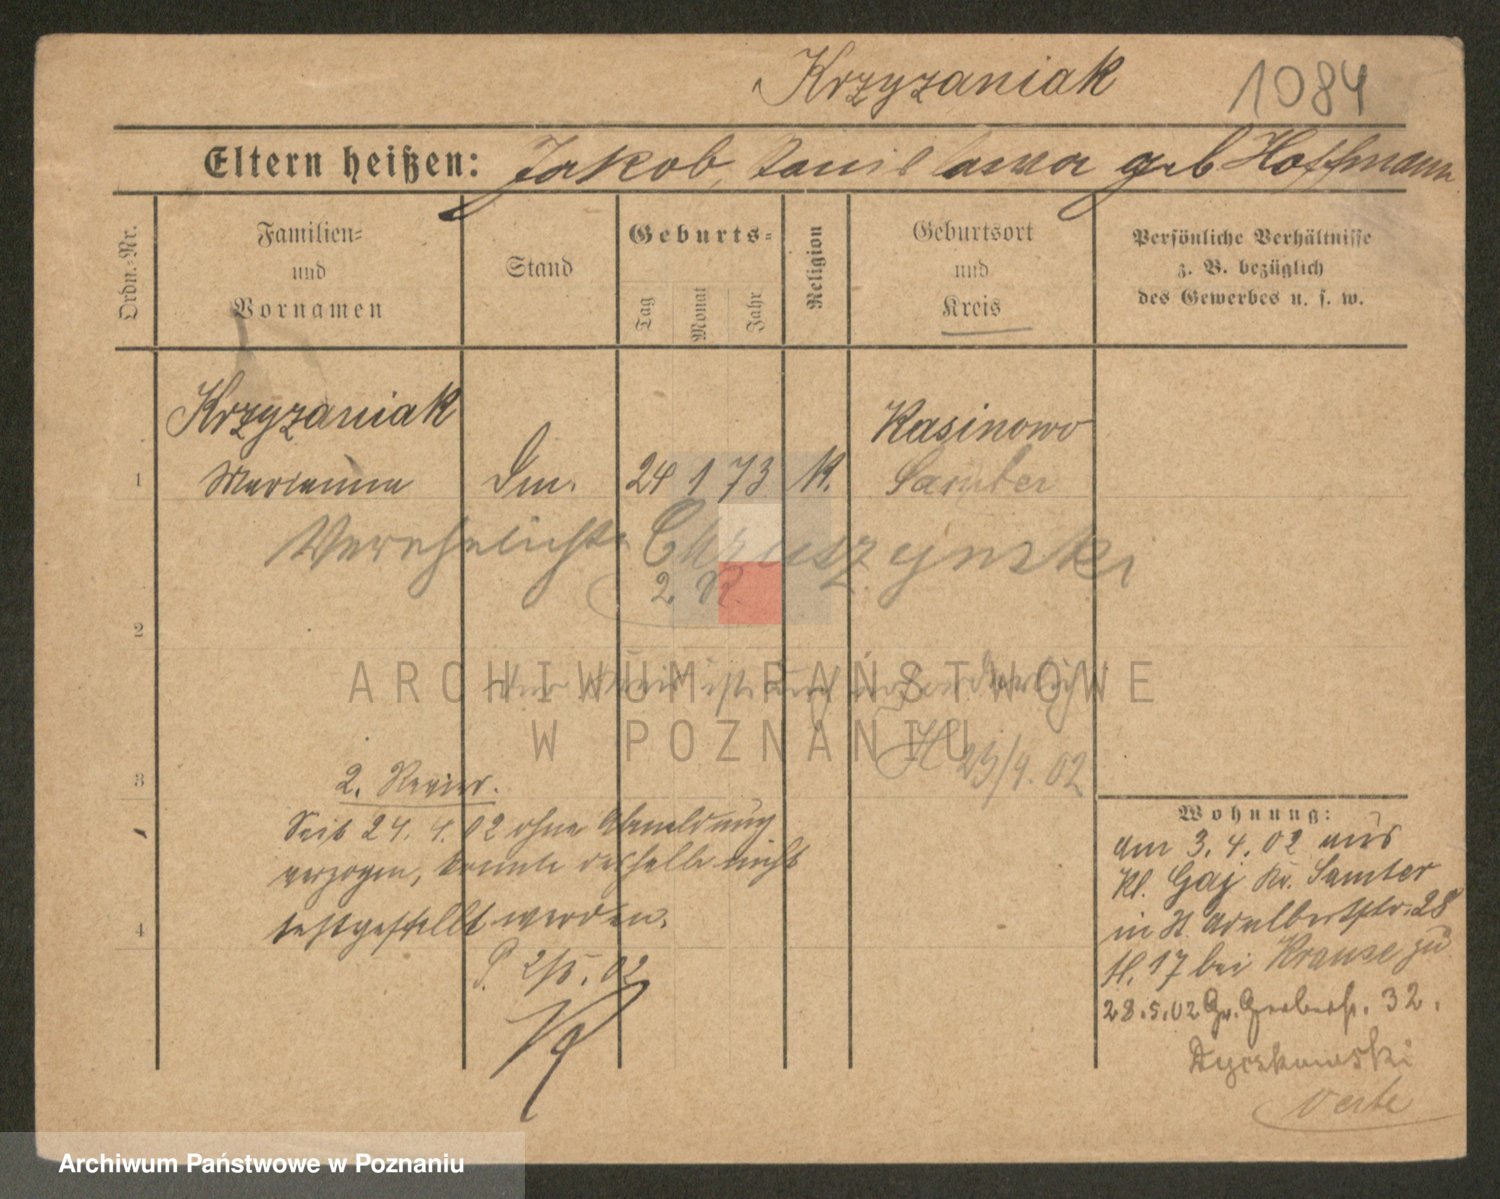 Krzyzaniak 1084
Eltern heißen: Jakob, Stanislawa geb Hoffmann
Ordn.-Nr.
Familien-
und
Vornamen
Stand
Geburts-
Tag
Monat
Jahr
Religion
Geburtsort
und
Kreis
Persönliche Verhältnisse
z. B. bezüglich
des Gewerbes u. s. w.
Krzyzaniak
Kasinowo
1 Marianna Dm. 24 1 73 K. Samter
Verehelichte Chruszynski
2. R.
2
ARCHIWUM PAŃSTWOWE
W POZNANIU
23/4. 02
3
2. Revier.
Seit 24. 4. 02 ohne Abmeldung
verzogen, konnte deshalb nicht
festgestellt werden.
4
P. 2/5. 02
Wohnung:
am 3. 4. 02 aus
Kl. Gaj Kr. Samter
in St. Adalbertstr. 28
H. 17 bei Krause zu
28. 5. 02 Gr. Gerberstr. 32.
Archiwum Państwowe w Poznaniu